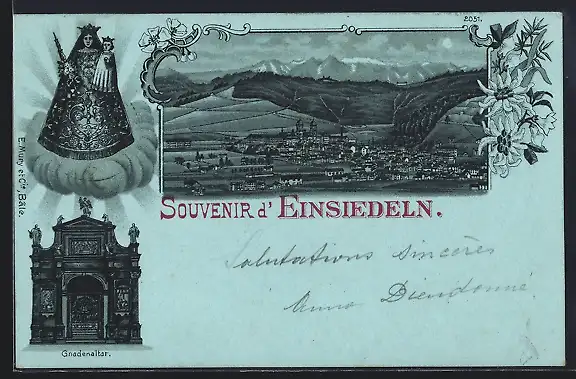 2051.
SOUVENIR d' EINSIEDELN.
E. Mury et Cie, Bâle.
Salutations sincères
Anna Dieudonné
Gnadenaltar.